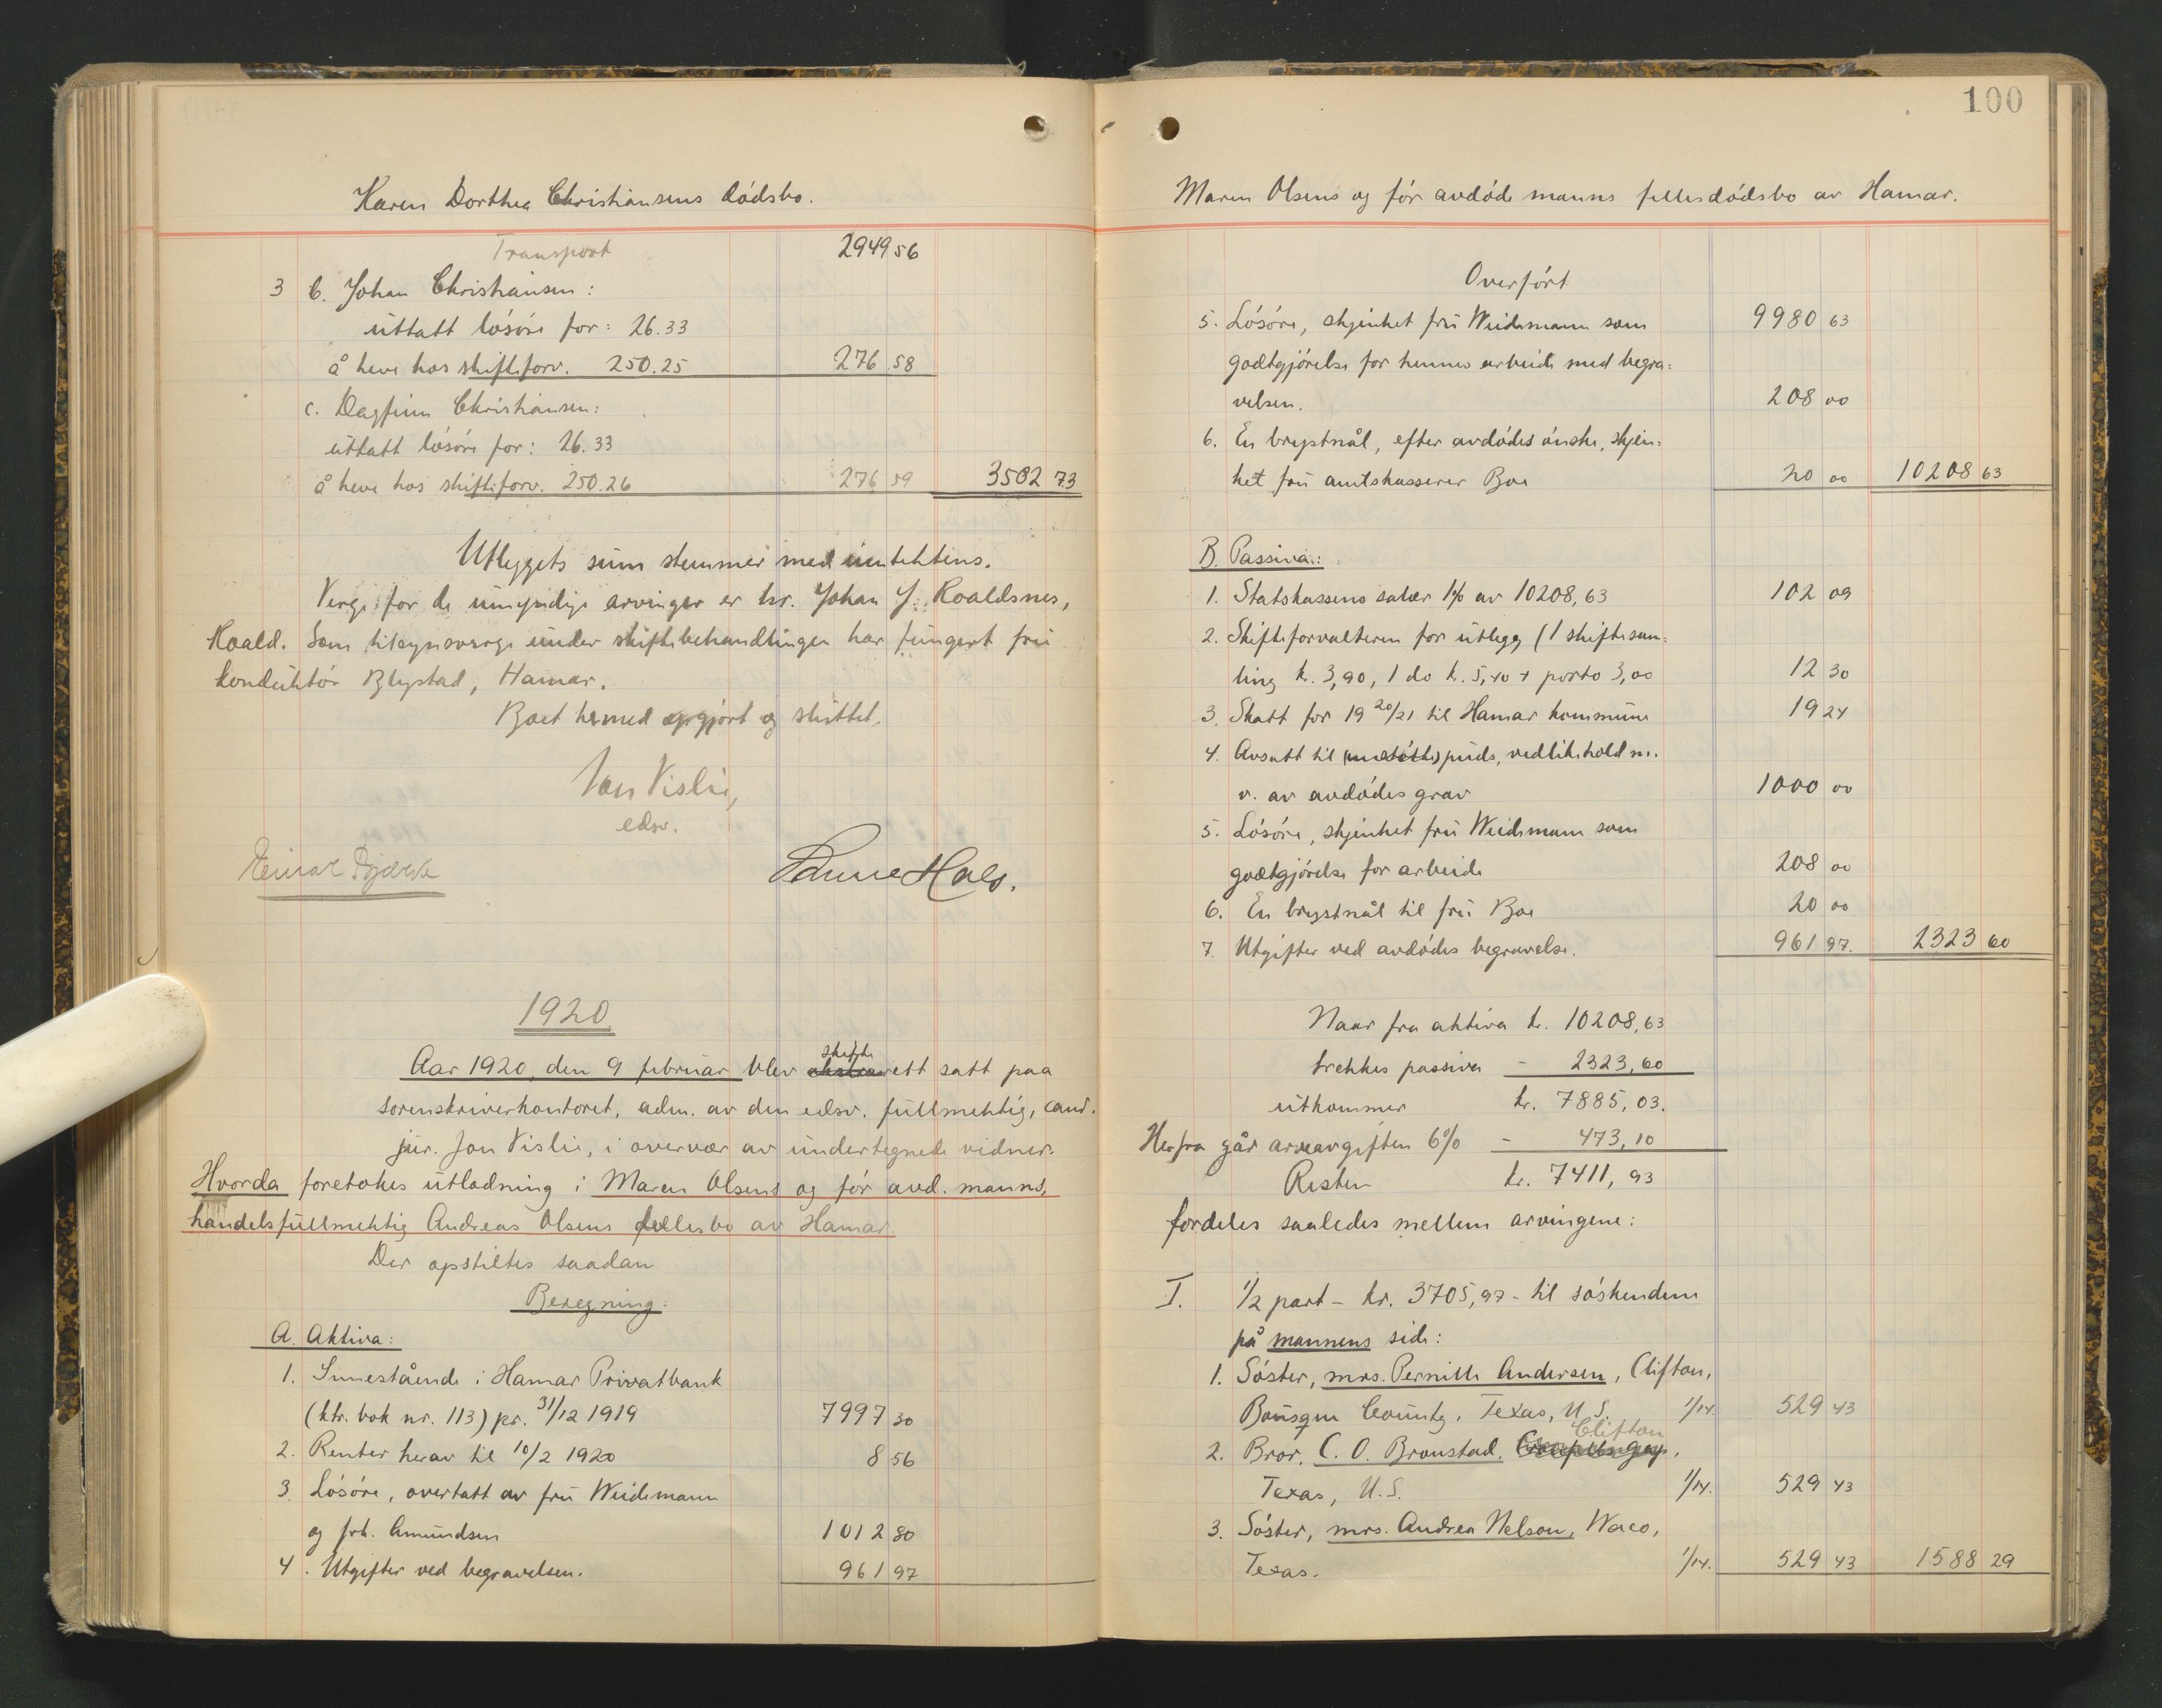 Karen Dorthea Christiansens dödsbo.
Transport 2949 56
3 b. Johan Christiansen:
uttatt lösöre for: 26.33
å heve hos skifteforv. 250.25 276 58
c. Dagfinn Christiansen:
uttatt lösöre for: 26.33
å heve hos skifteforv. 250.26 276 59 3502 73
Utleggets sum stemmer med inntektens.
Verge for de umyndige arvinger er hr. Johan J. Roaldsnes,
Roald. Som tilsynsverge under skiftebehandlingen har fungert fru
konduktör Blystad, Hamar.
Boet hermed opgjort og sluttet.
Jon Vislie,
edsv.
Einar Bjerke Anne Hals.
1920
Aar 1920, den 9 februar blev skifterett satt paa
sorenskriverkontoret, adm. av den edsv. fullmektig, cand.
jur. Jon Vislie, i overvær av undertegnede vidner.
Hvorda foretokes utlodning i Maren Olsens og för avd. manns,
handelsfullmektig Andreas Olsens fellesbo av Hamar.
Der opstilles saadan
Beregning:
A. Aktiva:
1. Innestående i Hamar Privatbank
(ktr. bok nr. 113) pr. 31/12 1919 7997 30
2. Renter herav til 10/2 1920 8 56
3. Lösöre, overtatt av fru Weidemann
og frk. Amundsen 1012 80
4. Utgifter ved begravelsen. 961 97
100
Maren Olsens og för avdöde manns fellesdödsbo av Hamar.
Overfört
5. Lösöre, skjenket fru Weidemann som 9980 63
godtgjörelse for hennes arbeide med begra-
velsen. 208 00
6. En brystnål, efter avdödes önske, skjen-
ket fru amtskasserer Boe 20 00 10208 63
B. Passiva:
1. Statskassens salær 1% av 10208,63 102 09
2. Skifteforvalteren for utlegg (1 skiftesam-
ling kr. 3,90, 1 do kr. 5,40 + porto 3,00 12 30
3. Skatt for 19 20/21 til Hamar kommune 19 24
4. Avsatt til puds, vedlikehold m.
v. av avdödes grav 1000 00
5. Lösöre, skjenket fru Weidemann som
godtgjörelse for arbeide 208 00
6. En brystnål til fru Boe 20 00
7. Utgifter ved avdödes begravelse. 961 97. 2323 60
Naar fra aktiva kr. 10208,63
trekkes passiva - 2323,60
utkommer kr. 7885,03.
Herfra går arveavgiften 6% - 473,10
Resten kr. 7411,93
fordeles saaledes mellem arvingene:
I. 1/2 part - kr. 3705,97 - til söskendene
på mannens side:
1. Söster, mrs. Pernille Andersen, Clifton,
Bousque County, Texas, U.S. 1/14. 529 43
Clifton
2. Bror, C. O. Bronstad,
Texas, U.S. 1/14. 529 43
3. Söster, mrs. Andrea Nelson, Waco,
Texas. 1/14. 529 43 1588 29